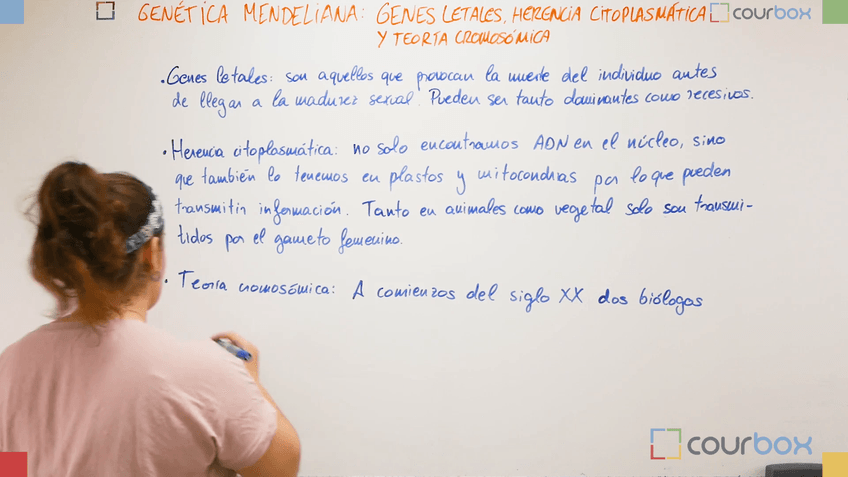 GENÉTICA MENDELIANA: GENES LETALES, HERENCIA CITOPLASMÁTICA
Y TEORÍA CROMOSÓMICA
courbox
• Genes letales: son aquellos que provocan la muerte del individuo antes
de llegar a la madurez sexual. Pueden ser tanto dominantes como recesivos.
• Herencia citoplasmática: no solo encontramos ADN en el núcleo, sino
que también lo tenemos en plastos y mitocondrias por lo que pueden
transmitir información. Tanto en animales como vegetal solo son transmi-
tidos por el gameto femenino.
• Teoría cromosómica: A comienzos del siglo XX dos biólogos
courbox